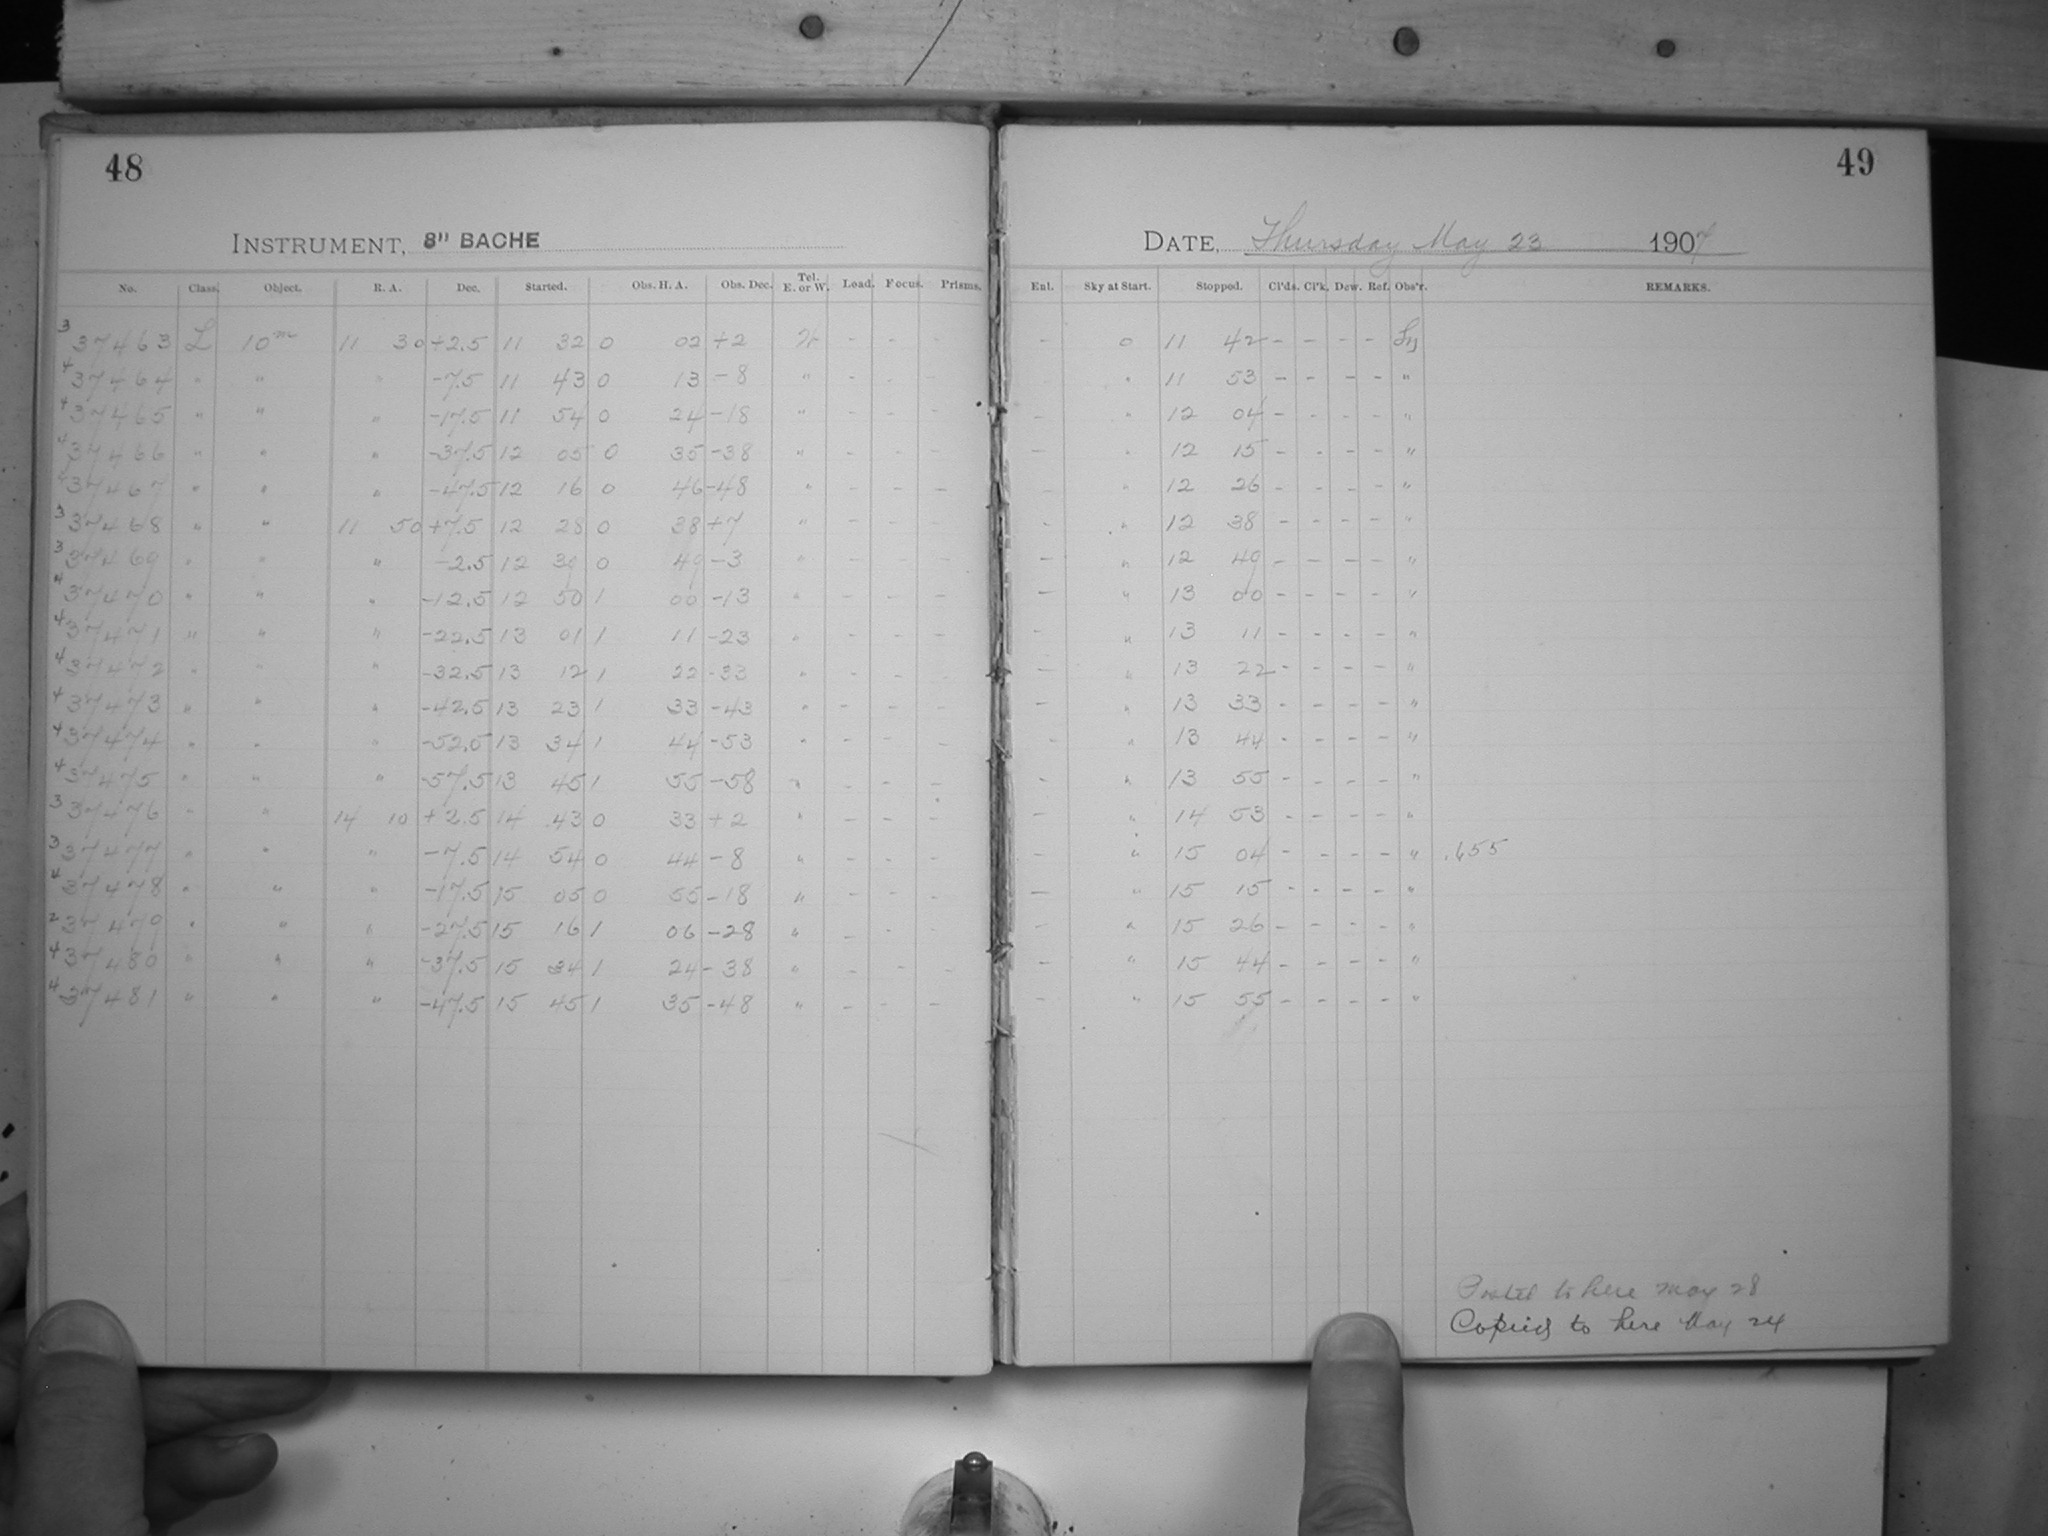 48
INSTRUMENT, 8" BACHE
No. Class. Object. R. A. Dec. Started. Obs. H. A. Obs. Dec. Tel. E. or W. Load. Focus. Prisms.
3 37463 L 10m 11 30 +2.5 11 32 0 02 +2 W - - -
4 37464 " " " -7.5 11 43 0 13 -8 " - - -
4 37465 " " " -17.5 11 54 0 24 -18 " - - -
4 37466 " " " -37.5 12 05 0 35 -38 " - - -
4 37467 " " " -47.5 12 16 0 46 -48 " - - -
3 37468 " " 11 50 +7.5 12 28 0 38 +7 " - - -
3 37469 " " " -2.5 12 39 0 49 -3 " - - -
4 37470 " " " -12.5 12 50 1 00 -13 " - - -
4 37471 " " " -22.5 13 01 1 11 -23 " - - -
4 37472 " " " -32.5 13 12 1 22 -33 " - - -
4 37473 " " " -42.5 13 23 1 33 -43 " - - -
4 37474 " " " -52.5 13 34 1 44 -53 " - - -
4 37475 " " " -57.5 13 45 1 55 -58 " - - -
3 37476 " " 14 10 +2.5 14 43 0 33 +2 " - - -
3 37477 " " " -7.5 14 54 0 44 -8 " - - -
4 37478 " " " -17.5 15 05 0 55 -18 " - - -
2 37479 " " " -27.5 15 16 1 06 -28 " - - -
4 37480 " " " -37.5 15 34 1 24 -38 " - - -
4 37481 " " " -47.5 15 45 1 35 -48 " - - -
49
DATE, Thursday May 23 1907
Enl. Sky at Start. Stopped. Cl'ds. Cl'k. Dew. Ref. Obs'r. REMARKS.
- 0 11 42 - - - -
" 11 53 - - - - "
- " 12 04 - - - - "
- " 12 15 - - - - "
- " 12 26 - - - - "
- " 12 38 - - - - "
- " 12 49 - - - - "
- " 13 00 - - - - "
- " 13 11 - - - - "
- " 13 22 - - - - "
- " 13 33 - - - - "
- " 13 44 - - - - "
- " 13 55 - - - - "
- " 14 53 - - - - "
- " 15 04 - - - - " .655
- " 15 15 - - - - "
- " 15 26 - - - - "
- " 15 44 - - - - "
- " 15 55 - - - - "
Posted to here May 28
Copied to here May 24